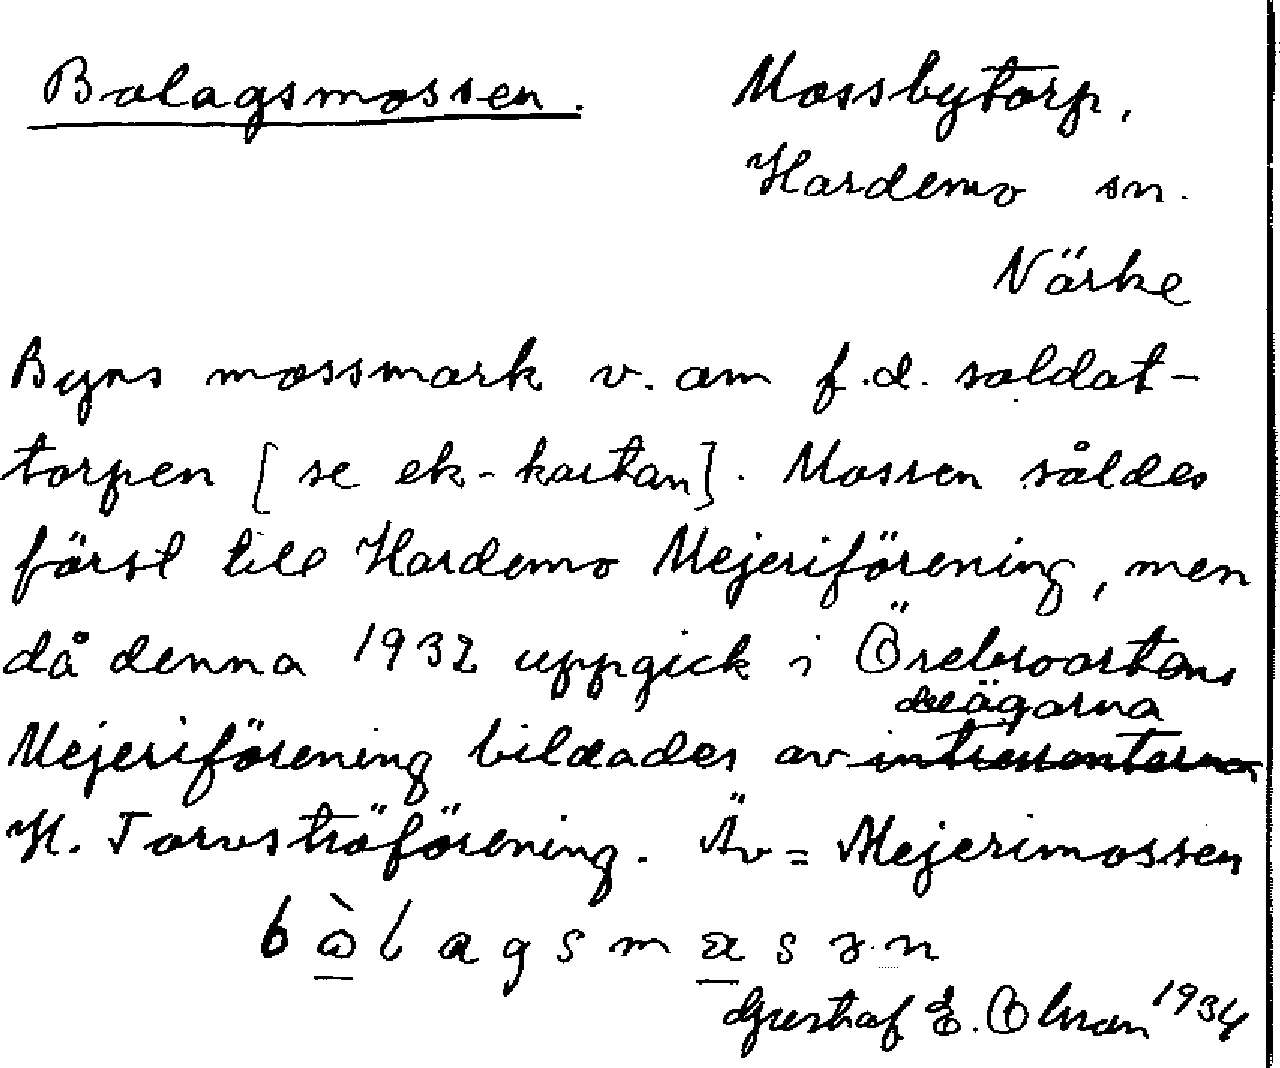 Bolagsmossen. Mossbytorp,
Hardemo sn.
Närke
Byns mossmark v. om f.d. soldat-
torpen [se ek-kartan]. Mossen såldes
först till Hardemo Mejeriförening, men
då denna 1932 uppgick i Örebroortens
delägarna
Mejeriförening bildades av intressenterna
H. Torvströförening. Äv = Mejerimossen
Gustaf E. Olsson 1934